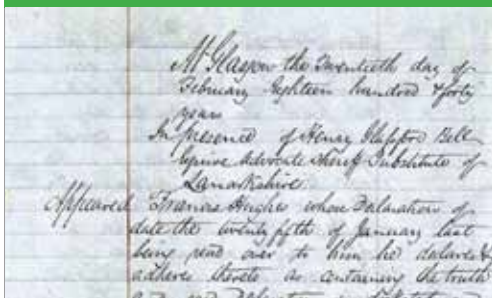 At Glasgow the Twentieth day of
February Eighteen hundred & forty
years
In presence of Henry Glassford Bell
Esquire Advocate Sheriff Substitute of
Lanarkshire
Appeared Francis Hughes whose Declaration of
date the twenty fifth of January last
being read over to him he declares &
adheres thereto as containing the truth